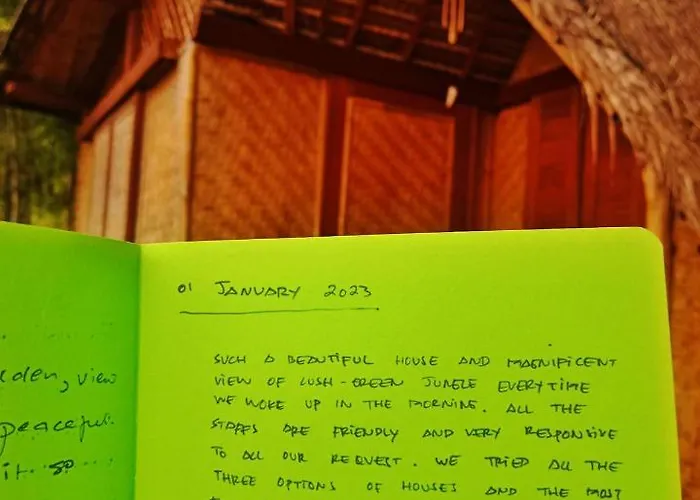 rden, view
peaceful.
it so
01 JANUARY 2023
SUCH A BEAUTIFUL HOUSE AND MAGNIFICENT
VIEW OF LUSH-GREEN JUNGLE EVERYTIME
WE WOKE UP IN THE MORNING. ALL THE
STAFFS ARE FRIENDLY AND VERY RESPONSIVE
TO ALL OUR REQUEST. WE TRIED ALL THE
THREE OPTIONS OF HOUSES AND THE MOST